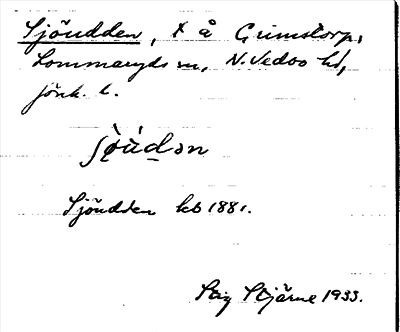 Sjöudden, t å Grimstorp,
Lommaryds sn, N. Vedbo hd,
Jönk. l.
Sjöudden kb 1881.
Stig Stjärne 1933.